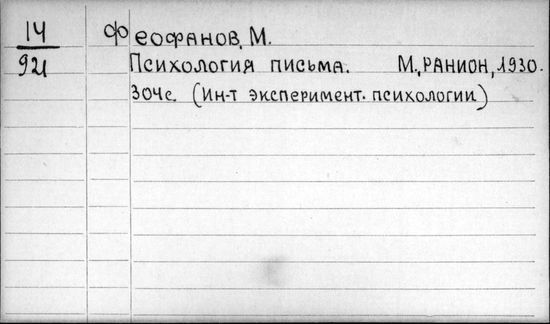 14
921
Феофанов, М.
Психология письма. М., РАНИОН, 1930.
304с. (Ин-т эксперимент. психологии)